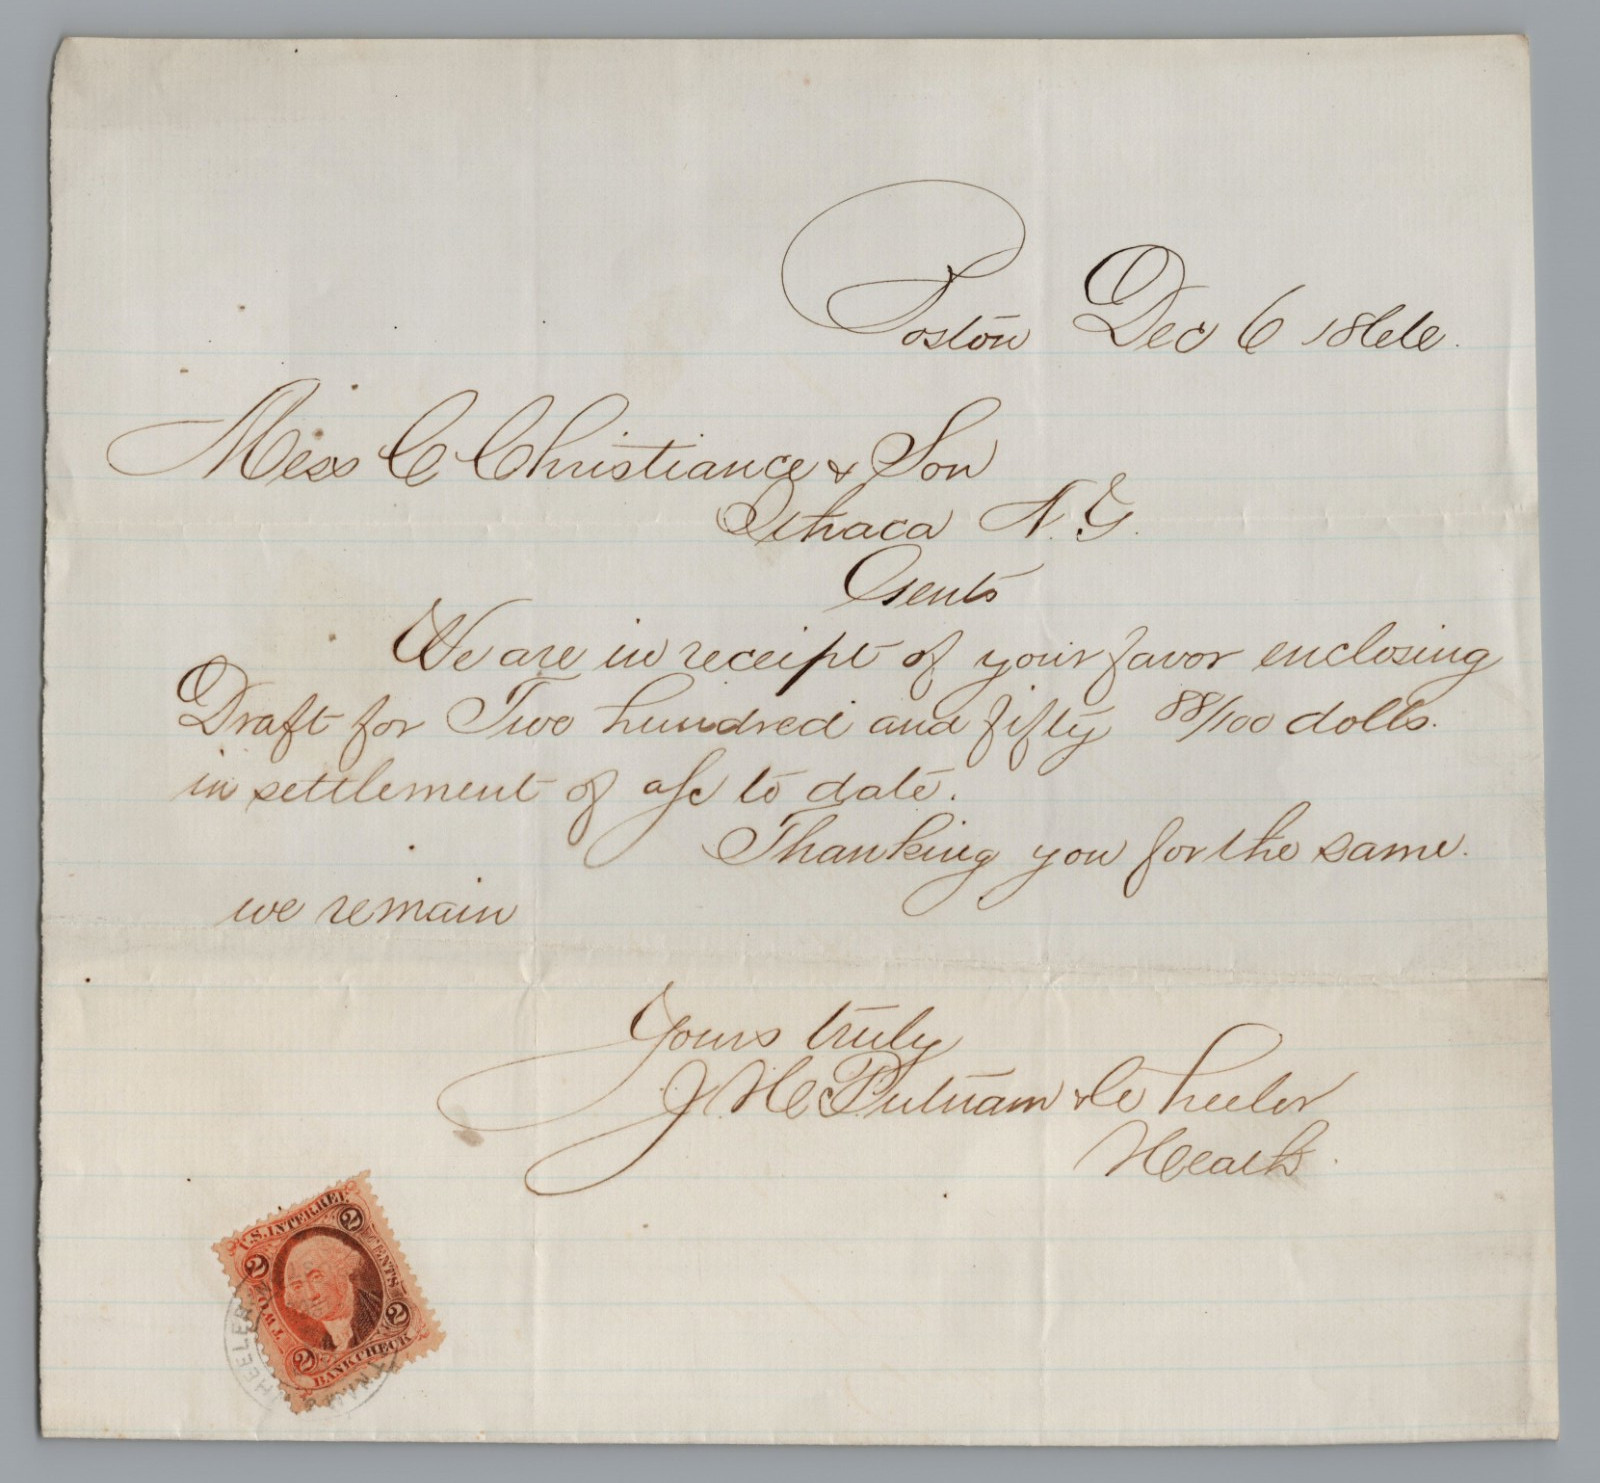 Boston Dec 6 1866.
Mess C Christiance & Son
Ithaca N.Y.
Gents
We are in receipt of your favor enclosing
Draft for Two hundred and fifty 88/100 dolls.
in settlement of a/c to date.
Thanking you for the same.
we remain
Yours truly
J. H. Putnam & Wheeler
U.S. INTER. REV.
2 CENTS 2
TWO 2
2 BANK CHECK
WHEELER